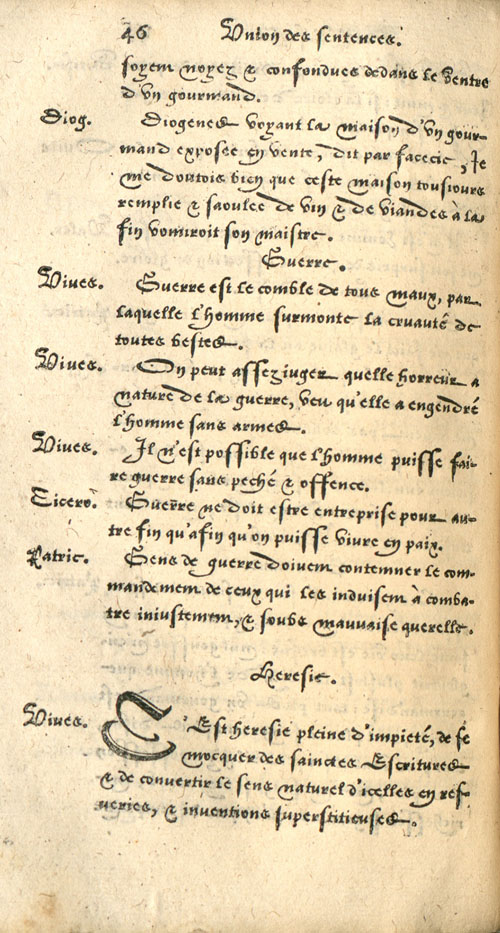 46 Vnion des sentences.
soyent noyez & confondues dedans le ventre
d'vn gourmand.
Diog. Diogenes voyant la maison d'vn gour-
mand exposee en vente, dit par facecie, Ie
me doutois bien que ceste maison tousiours
remplie & saoulee de vin & de viandes à la
fin vomiroit son maistre.
Guerre.
Vives. Guerre est le comble de tous maux, par
laquelle l'homme surmonte la cruauté de
toutes bestes.
Vives. On peut assez iuger quelle horreur a
nature de la guerre, veu qu'elle a engendré
l'homme sans armes.
Vives. Il n'est possible que l'homme puisse fai-
re guerre sans peché & offence.
Cicero. Guerre ne doit estre entreprise pour au-
tre fin qu'afin qu'on puisse vivre en paix.
Patric. Gens de guerre doivent contemner le com-
mandement de ceux qui les induisent à comba-
tre iniustement, & soubs mauvaise querelle.
Heresie.
Vives. C'Est heresie pleine d'impieté, de se
mocquer des sainctes Escritures
& de convertir le sens naturel d'icelles en res-
veries, & inventions superstitieuses.